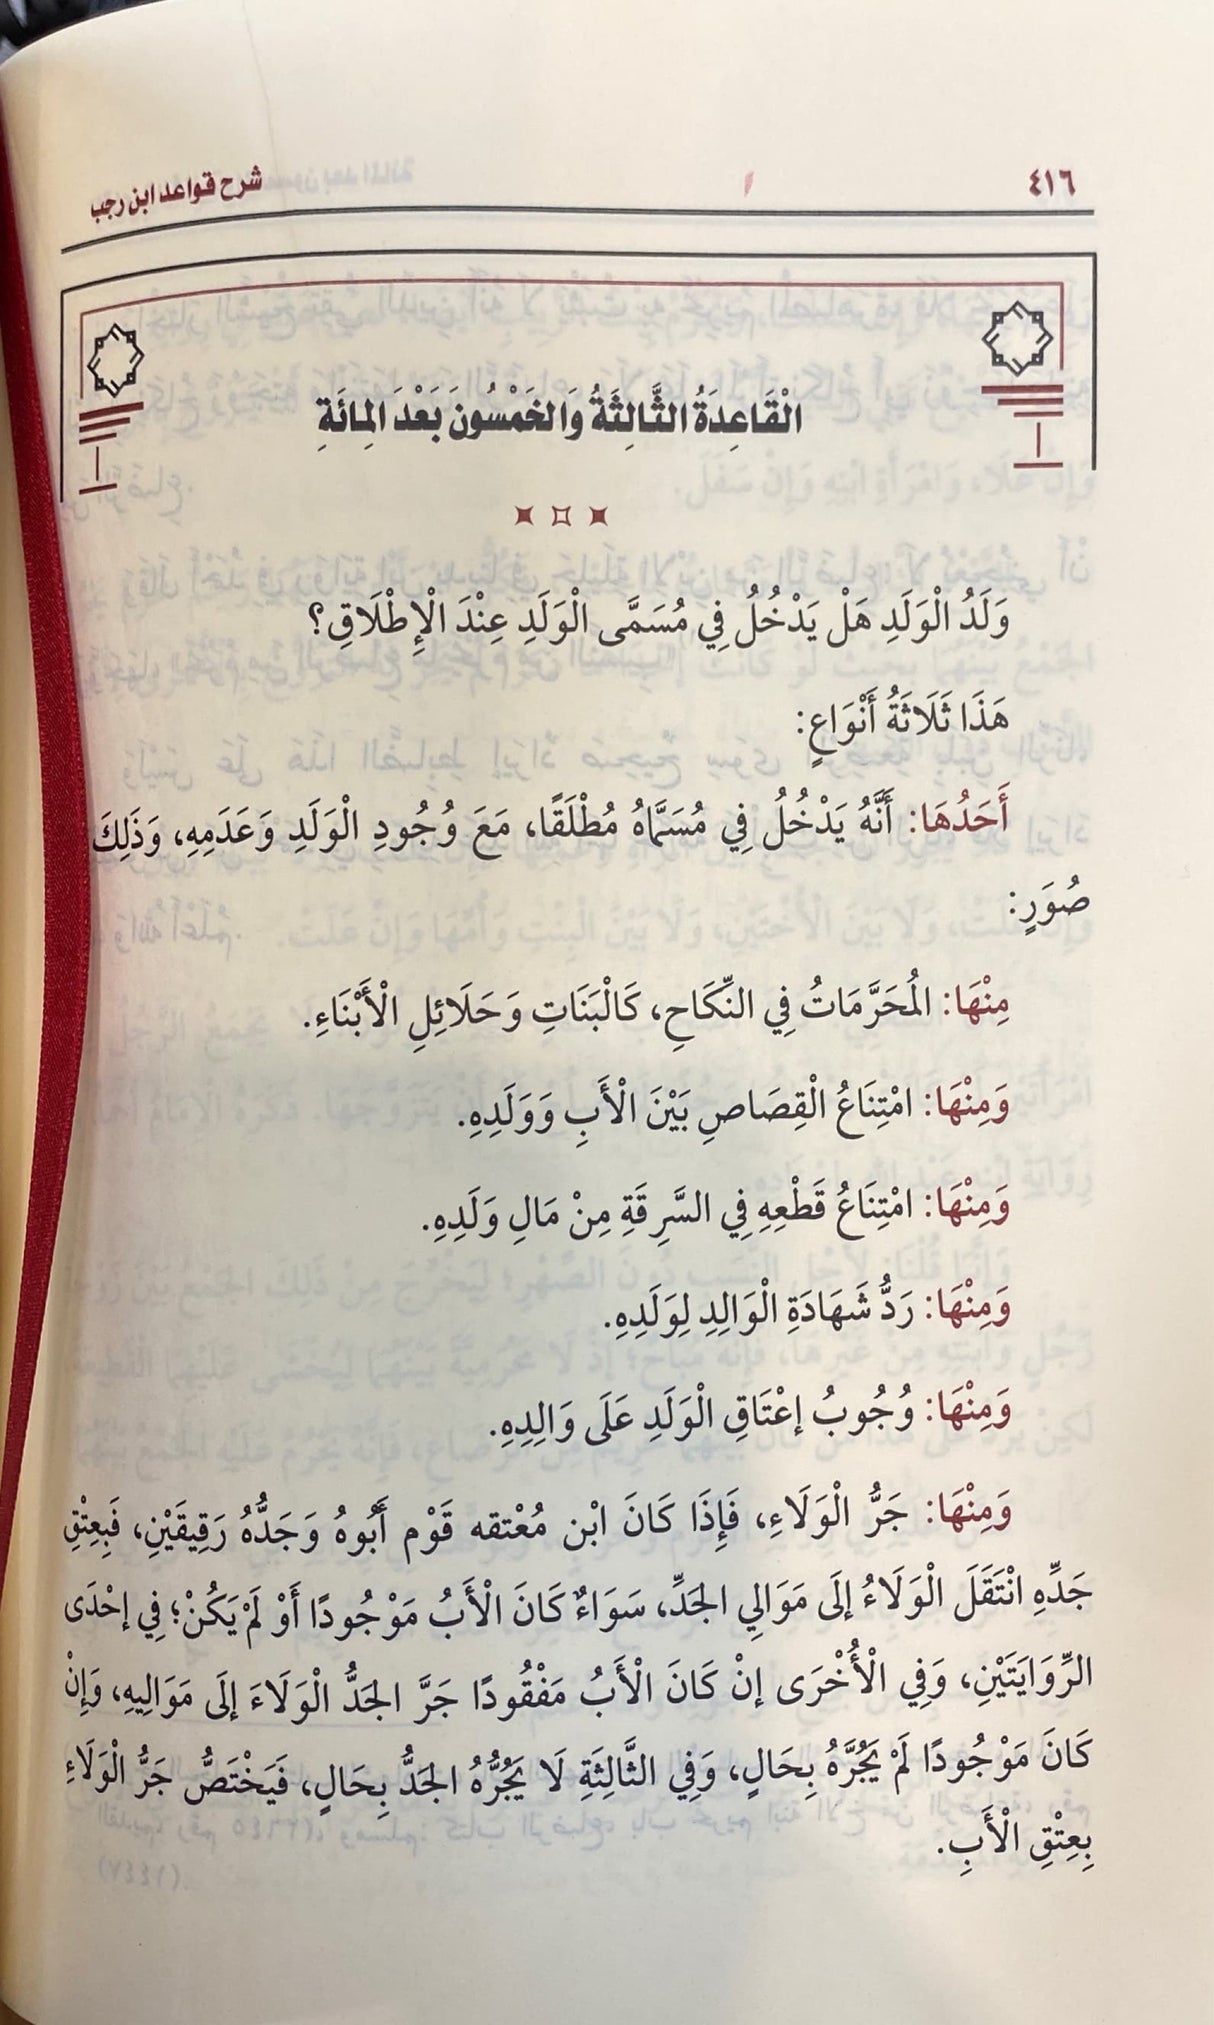 ٤١٦
شرح قواعد ابن رجب
الْقَاعِدَةُ الثَّالِثَةُ وَالخَمْسُونَ بَعْدَ المِائَةِ
وَلَدُ الْوَلَدِ هَلْ يَدْخُلُ فِي مُسَمَّى الْوَلَدِ عِنْدَ الْإِطْلَاقِ؟
هَذَا ثَلَاثَةُ أَنْوَاعٍ:
أَحَدُهَا: أَنَّهُ يَدْخُلُ فِي مُسَمَّاهُ مُطْلَقًا، مَعَ وُجُودِ الْوَلَدِ وَعَدَمِهِ، وَذَلِكَ
صُوَرٍ:
مِنْهَا: المُحَرَّمَاتُ فِي النِّكَاحِ، كَالْبَنَاتِ وَحَلَائِلِ الْأَبْنَاءِ.
وَمِنْهَا: امْتِنَاعُ الْقِصَاصِ بَيْنَ الْأَبِ وَوَلَدِهِ.
وَمِنْهَا: امْتِنَاعُ قَطْعِهِ فِي السَّرِقَةِ مِنْ مَالِ وَلَدِهِ.
وَمِنْهَا: رَدُّ شَهَادَةِ الْوَالِدِ لِوَلَدِهِ.
وَمِنْهَا: وُجُوبُ إعْتَاقِ الْوَلَدِ عَلَى وَالِدِهِ.
وَمِنْهَا: جَرُّ الْوَلَاءِ، فَإِذَا كَانَ ابْن مُعْتقه قَوْم أَبُوهُ وَجَدُّهُ رَقِيقَيْنِ، فَبِعِتْقِ
جَدِّهِ انْتَقَلَ الْوَلَاءُ إلَى مَوَالِي الجَدِّ، سَوَاءٌ كَانَ الْأَبُ مَوْجُودًا أَوْ لَمْ يَكُنْ؛ فِي إحْدَى
الرِّوَايَتَيْنِ، وَفِي الْأُخْرَى إنْ كَانَ الْأَبُ مَفْقُودًا جَرَّ الجَدُّ الْوَلَاءَ إلَى مَوَالِيهِ، وَإِنْ
كَانَ مَوْجُودًا لَمْ يَجُرَّهُ بِحَالٍ، وَفِي الثَّالِثَةِ لَا يَجُرُّهُ الجَدُّ بِحَالٍ، فَيَخْتَصُّ جَرُّ الْوَلَاءِ
بِعِتْقِ الْأَبِ.